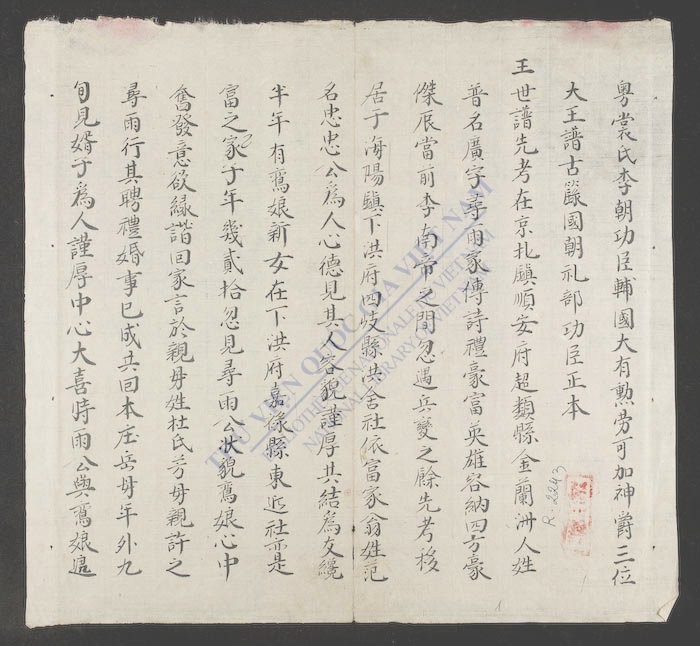 粵裳氏李朝功臣輔國大有勲勞可加神爵三位
大王譜古籙國朝礼部功臣正本
王世譜先考在京北鎮順安府超類縣金蘭洲人姓
普名廣字尋雨家傳詩禮豪富英雄容納四方豪
傑辰當前李南帝之間忽遇兵變之餘先考移
居于海陽鎮下洪府四岐縣洪舍社依富家翁姓范
名忠忠公為人心德見其人容貌謹厚共結為友纔
半年有鶯娘新女在下洪府嘉祿縣東近社亦是
富之家子年幾貳拾忽見尋雨公狀貌鶯娘心中
奮發意欲緣諧回家言於親毋姓杜氏芳毋親許之
尋雨行其聘禮婚事已成共回本庄岳毋年外九
旬見婿子為人謹厚中心大喜時雨公與鶯娘
THƯ VIỆN QUỐC GIA VIỆT NAM
BIBLIOTHÈQUE NATIONALE DU VIETNAM
NATIONAL LIBRARY OF VIETNAM
R. 2243
1